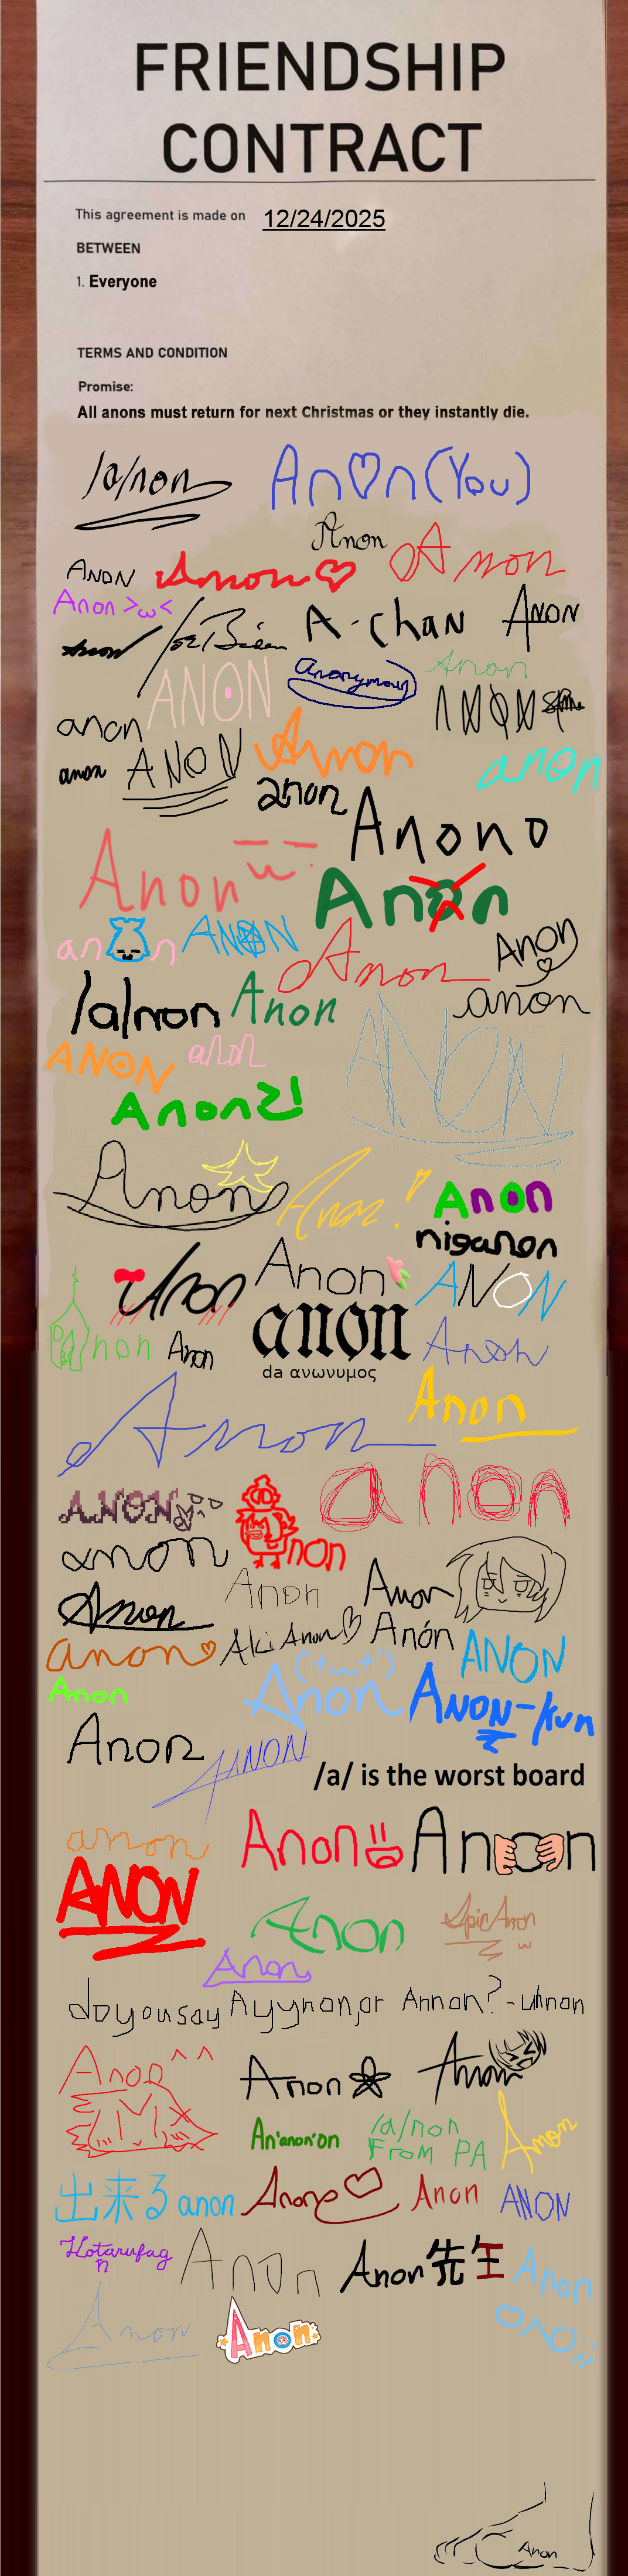 FRIENDSHIP
CONTRACT
This agreement is made on 12/24/2025
BETWEEN
1. Everyone
TERMS AND CONDITION
Promise:
All anons must return for next Christmas or they instantly die.
/a/non
An♡n (You)
Anon
Anon
ANON
Anon♡
Anon >ω<
Anon
Joe Biden
A-chan
ANON
ANON
Anonymous
Anon
anon
anon
ANON
Anon
anon
anon
Anono
Anon
Anon
an n
ANON
Anon
Anon
/a/non
Anon
anon
ANON
anon
ANON
Anon2!
Anon
Anon
niganon
Anon
Anon
ANON
non
Anon
anon
da ανωνυμος
Anon
Anon
Anon
ANON
non
anon
anon
Anon
Anon
Anon
anon♡
Aki Anon♡
Anón
ANON
Anon
Anon
ANON-kun
Anon
ANON
/a/ is the worst board
anon
Anon
Anon
ANON
Anon
Epic Anon
Anon
do you say Ayynon, or Annon? -
Anon ^^
Anon
Anon
An'anon'on
/a/non
FROM PA
Anon
出来る anon
Anon
Anon
ANON
Hotarufag
n
Anon
Anon先生
Anon
Anon
Anon
Anon